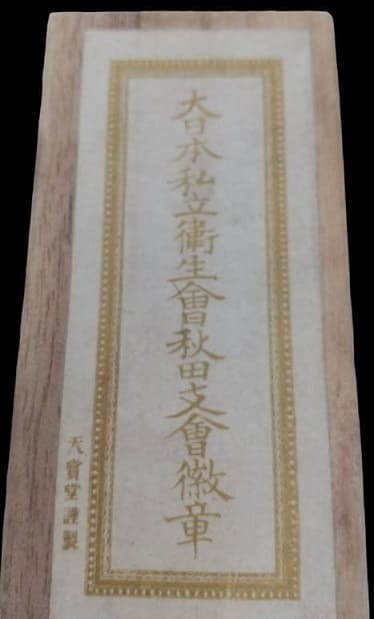 大日本私立衞生會秋田支會徽章
天寶堂謹製